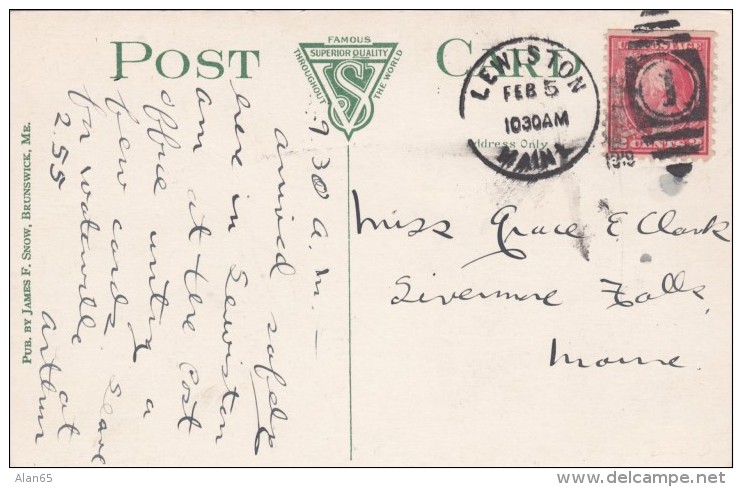 POST CARD
FAMOUS
SUPERIOR QUALITY
THROUGHOUT THE WORLD
S
LEWISTON
FEB 5
1030AM
MAINE
1919
1
U.S. POSTAGE
Address Only
Miss Grace E. Clark
Livermore Falls,
Maine.
9 30 a. m. —
arrived safely
here in Lewiston
am at the Post
office writing a
few cards. Leave
for Waterville at
2.55
Arthur
PUB. BY JAMES F. SNOW, BRUNSWICK, ME.
Alan65
www.delcampe.net